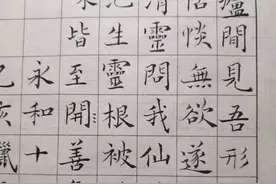 間見吾形
恬惔無欲遂
靈問我仙
生靈根被
皆至開善
永和十